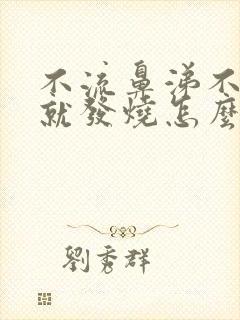 不流鼻涕不
就發燒怎麼
劉秀群